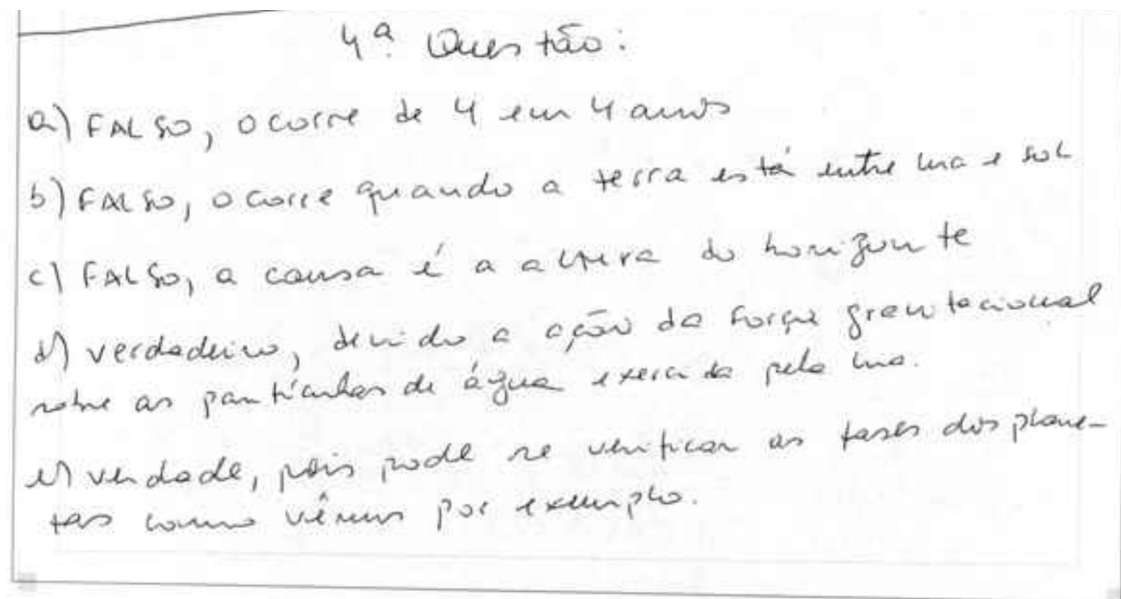 4ª Questão:
a) FALSO, ocorre de 4 em 4 anos
b) FALSO, ocorre quando a terra está entre lua e sol
c) FALSO, a causa é a altura do horizonte
d) verdadeiro, devido a ação da força gravitacional
sobre as partículas de água exercida pela lua.
e) verdade, pois pode se verificar as fases dos plane-
tas como vênus por exemplo.